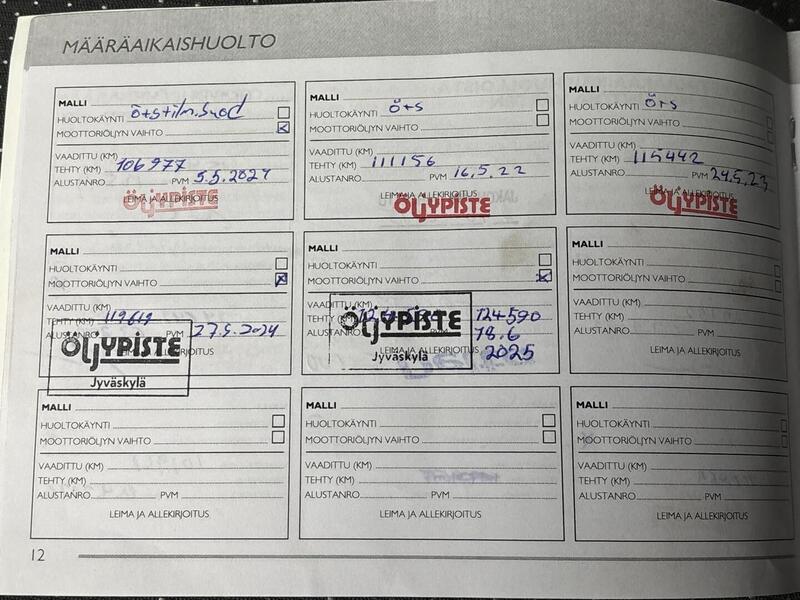 MÄÄRÄAIKAISHUOLTO
MALLI
HUOLTOKÄYNTI ö+s+ilm.suod
MOOTTORIÖLJYN VAIHTO
VAADITTU (KM)
TEHTY (KM) 106977
ALUSTANRO PVM 5.5.2021
LEIMA JA ALLEKIRJOITUS
ÖLJYPISTE
MALLI
HUOLTOKÄYNTI ö+s
MOOTTORIÖLJYN VAIHTO
VAADITTU (KM)
TEHTY (KM) 111156
ALUSTANRO PVM 16.5.22
LEIMA JA ALLEKIRJOITUS
ÖLJYPISTE
MALLI
HUOLTOKÄYNTI ö+s
MOOTTORIÖLJYN VAIHTO
VAADITTU (KM)
TEHTY (KM) 115442
ALUSTANRO PVM 24.5.23
LEIMA JA ALLEKIRJOITUS
ÖLJYPISTE
MALLI
HUOLTOKÄYNTI
MOOTTORIÖLJYN VAIHTO
VAADITTU (KM)
TEHTY (KM) 119619
ALUSTANRO PVM 27.5.2024
LEIMA JA ALLEKIRJOITUS
ÖLJYPISTE
Jyväskylä
MALLI
HUOLTOKÄYNTI
MOOTTORIÖLJYN VAIHTO
VAADITTU (KM)
TEHTY (KM) 124590
ALUSTANRO 18.6
LEIMA JA ALLEKIRJOITUS 2025
ÖLJYPISTE
Jyväskylä
MALLI
HUOLTOKÄYNTI
MOOTTORIÖLJYN VAIHTO
VAADITTU (KM)
TEHTY (KM)
ALUSTANRO PVM
LEIMA JA ALLEKIRJOITUS
MALLI
HUOLTOKÄYNTI
MOOTTORIÖLJYN VAIHTO
VAADITTU (KM)
TEHTY (KM)
ALUSTANRO PVM
LEIMA JA ALLEKIRJOITUS
MALLI
HUOLTOKÄYNTI
MOOTTORIÖLJYN VAIHTO
VAADITTU (KM)
TEHTY (KM)
ALUSTANRO PVM
LEIMA JA ALLEKIRJOITUS
MALLI
HUOLTOKÄYNTI
MOOTTORIÖLJYN VAIHTO
VAADITTU (KM)
TEHTY (KM)
ALUSTANRO PVM
LEIMA JA ALLEKIRJOITUS
12